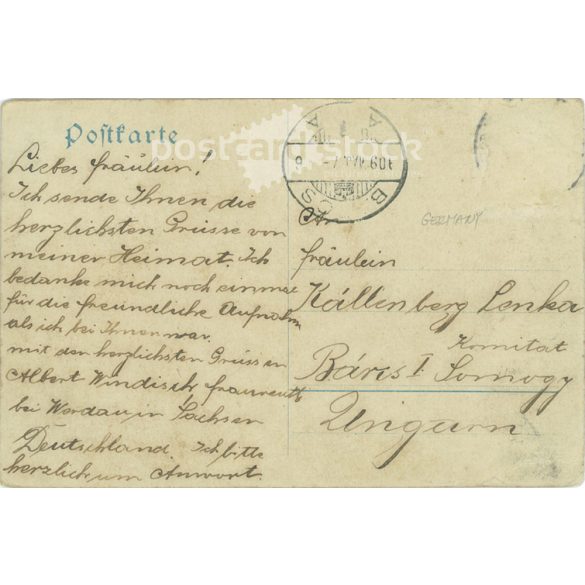 Postkarte
postcardstock
Liebes Fräulein!
Ich sende Ihnen die
herzlichsten Grüsse von
meiner Heimat. Ich
bedanke mich noch einmal
für die freundliche Aufnahme
als ich bei Ihnen war.
mit den herzlichsten Grüssen
Albert Windisch Fraureuth
bei Werdau in Sachsen
Deutschland. Ich bitte
herzlich um Antwort.
An
GERMANY
Fräulein
Kállenberg Lenka
Komitat
Somogy
Ungarn